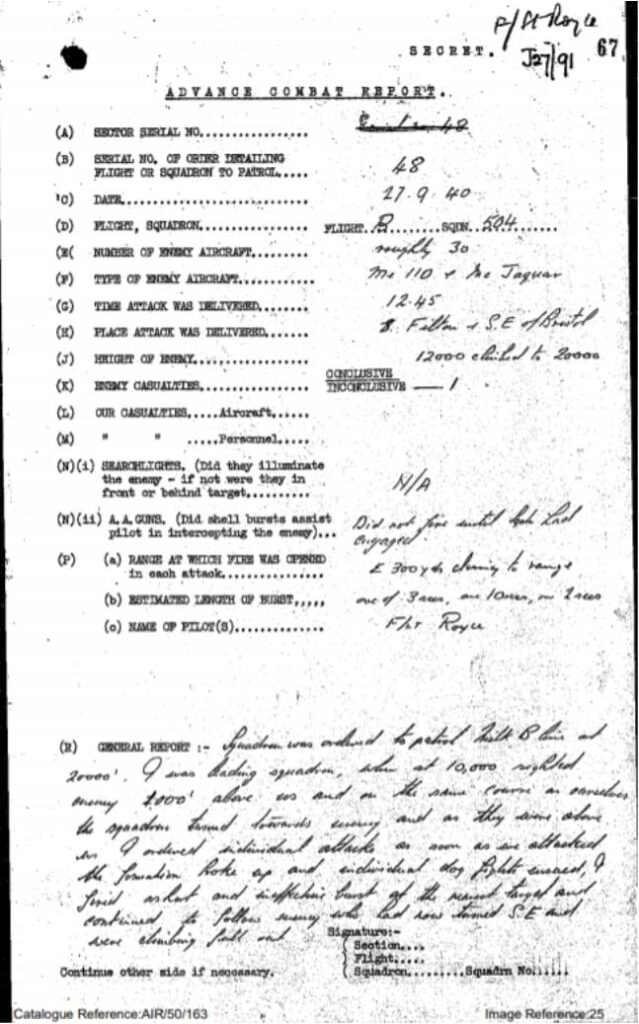 F/Lt Royce
SECRET.
J27/91
67
ADVANCE COMBAT REPORT.
(A) SECTOR SERIAL NO.................
(B) SERIAL NO. OF ORDER DETAILING
FLIGHT OR SQUADRON TO PATROL..... 48
(C) DATE............................ 27.9.40
(D) FLIGHT, SQUADRON................. FLIGHT B........SQDN. 504.......
(E( NUMBER OF ENEMY AIRCRAFT......... roughly 30
(F) TYPE OF ENEMY AIRCRAFT........... Me 110 & Me Jaguar
(G) TIME ATTACK WAS DELIVERED........ 12.45
(H) PLACE ATTACK WAS DELIVERED....... Filton & S.E of Bristol
(J) HEIGHT OF ENEMY.................. 12000 climbed to 20000
(K) ENEMY CASUALTIES................. CONCLUSIVE
INCONCLUSIVE — 1
(L) OUR CASUALTIES.....Aircraft......
(M) " " .....Personnel.....
(N)(i) SEARCHLIGHTS. (Did they illuminate
the enemy - if not were they in
front or behind target.......... N/A
(N)(ii) A.A.GUNS. (Did shell bursts assist
pilot in intercepting the enemy)... Did not fire until had
engaged
(P) (a) RANGE AT WHICH FIRE WAS OPENED
in each attack............... 300 yds closing to range
(b) ESTIMATED LENGTH OF BURST..... one of 3 secs, one 10 secs, on 2 secs
(c) NAME OF PILOT(S).............. F/Lt Royce
(R) GENERAL REPORT :- Squadron was ordered to patrol B line at
20000'. I was leading squadron, when at 10,000 sighted
enemy above us and on the same course as ourselves
the squadron turned towards enemy and as they were above
us I ordered individual attacks as soon as we attacked
the formation broke up and individual dog fights ensued, I
fired a short and ineffective burst at the nearest target and
continued to follow enemy who had now turned S.E and
were climbing full out
Signature:-
Section....
Flight.....
Continue other side if necessary. Squadron.........Squadrn No......
Catalogue Reference:AIR/50/163 Image Reference:25